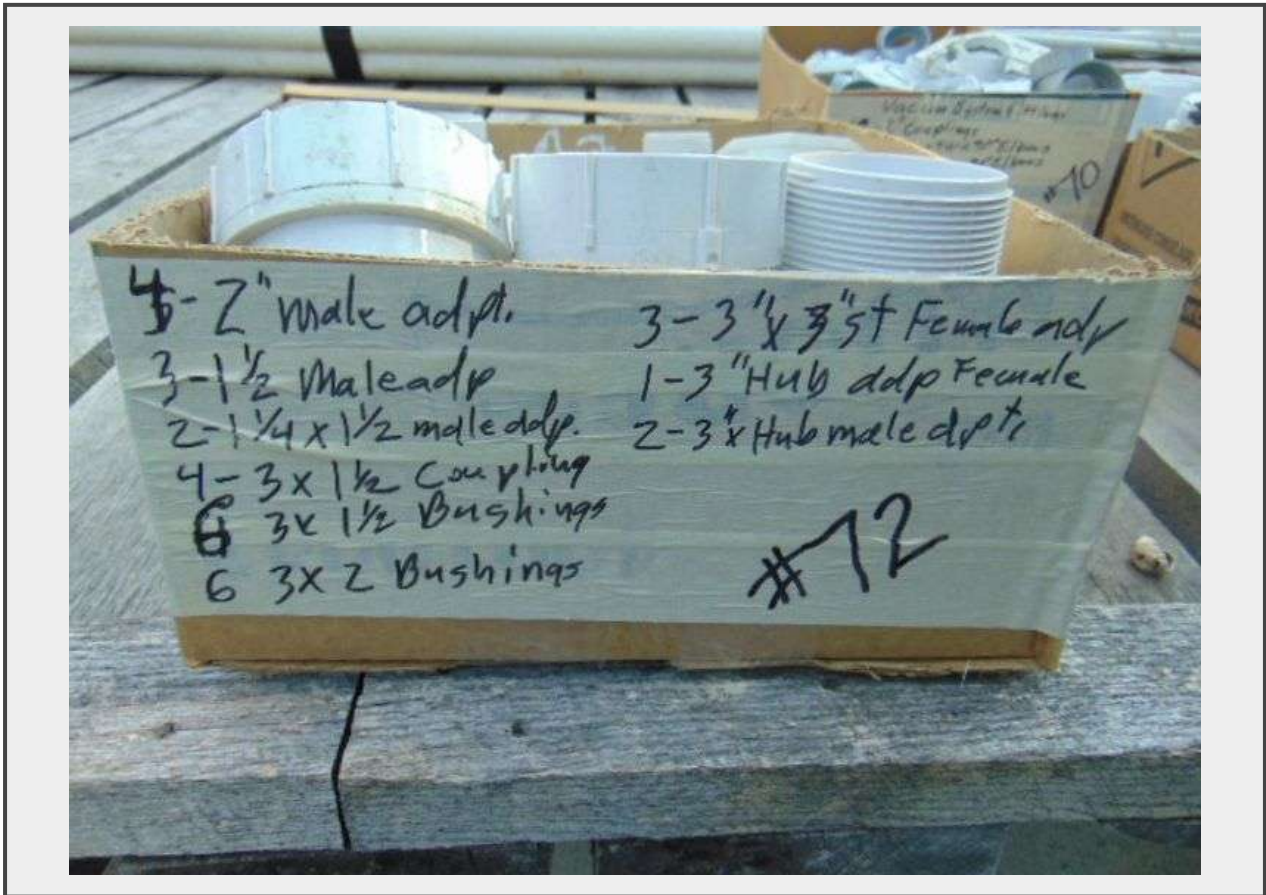 4-2" male adpt.
3-1 1/2 Male adp
2-1 1/4 x 1 1/2 male adp.
4-3 x 1 1/2 Coupling
6 3x 1 1/2 Bushings
6 3x2 Bushings
3-3"x3"st Female adp
1-3"Hub adp Female
2-3"x Hub male adpt.
#72
Couplings
#70